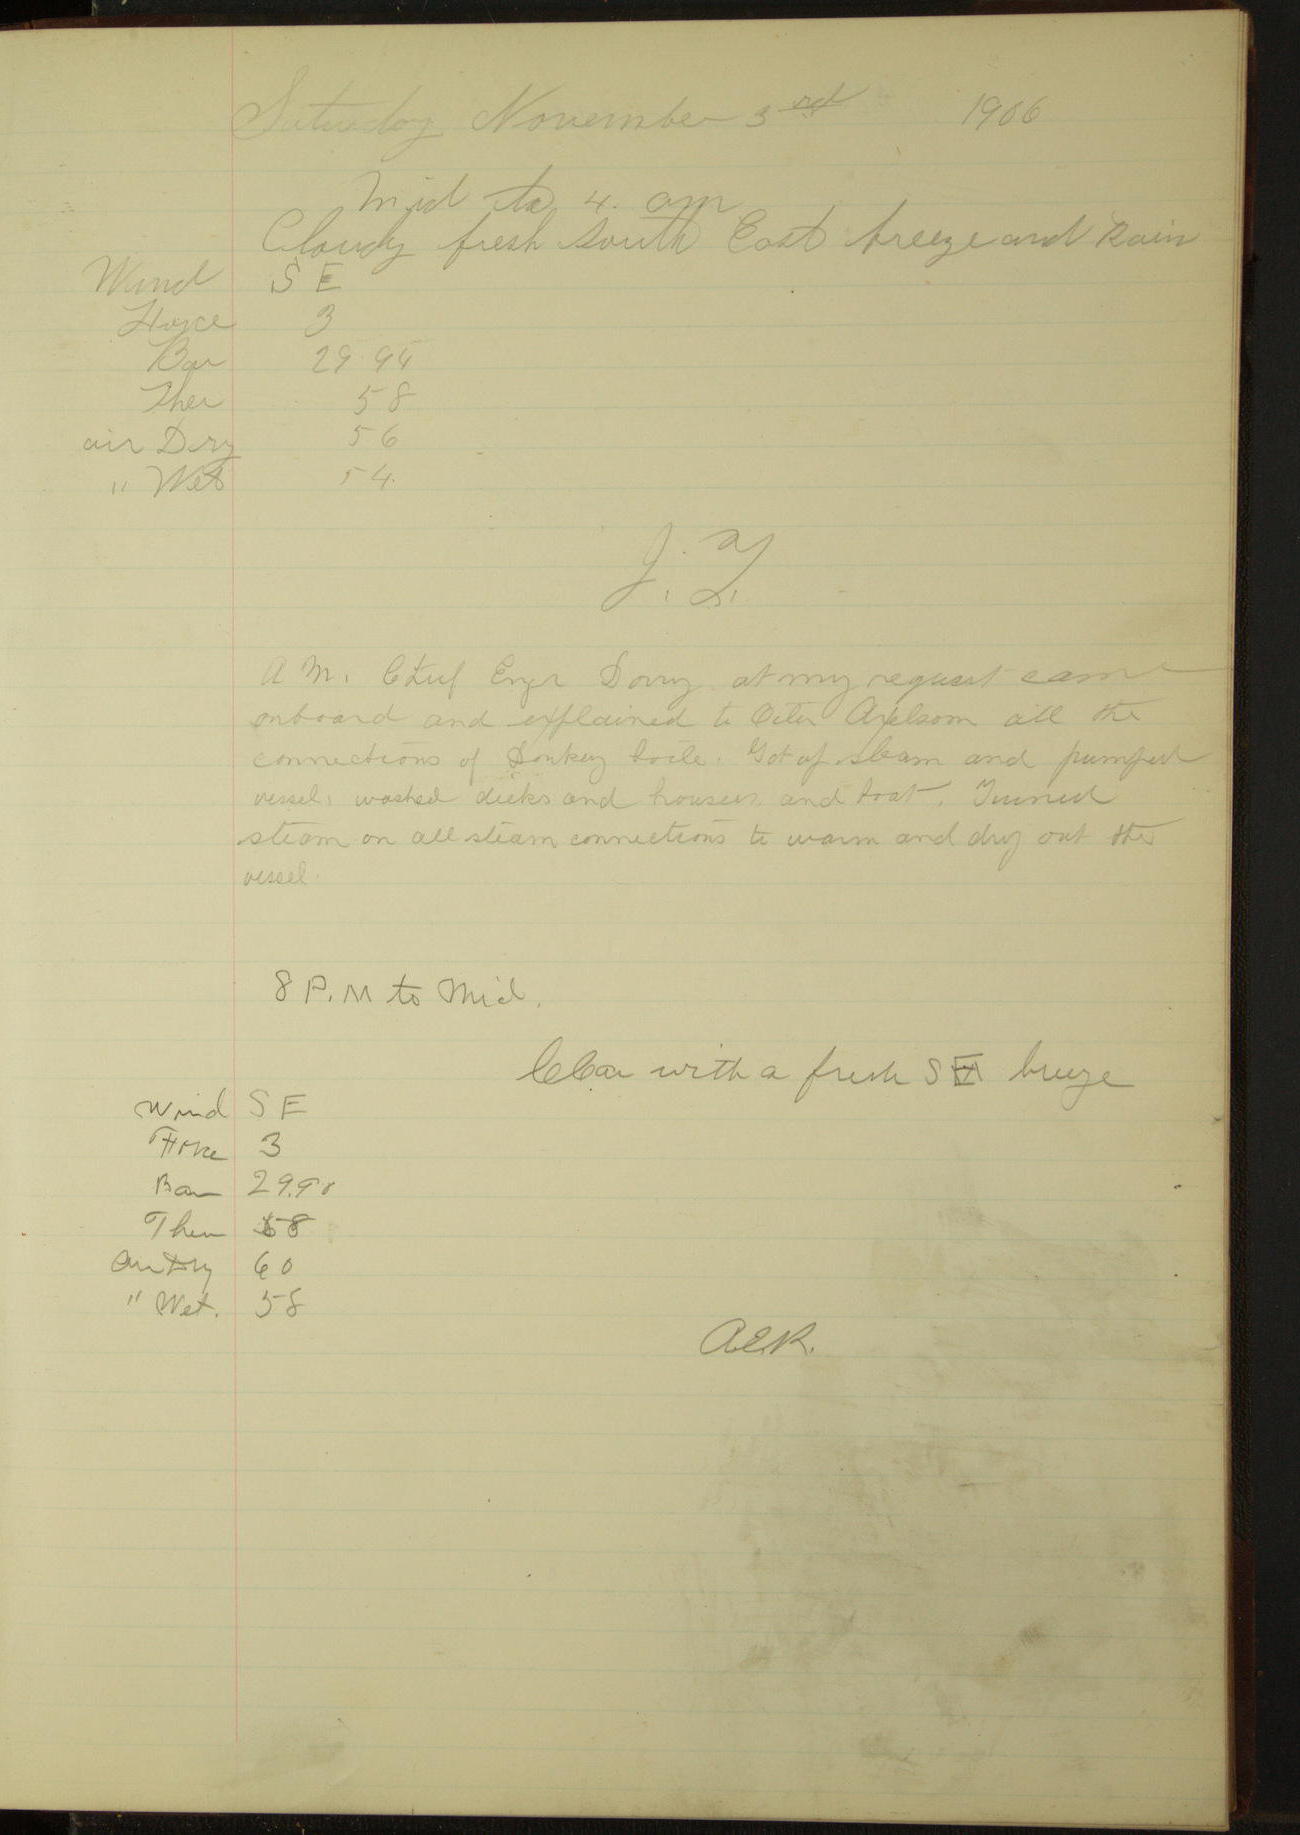 Saturday November 3rd 1906
Mid to 4. am
Cloudy fresh South East breeze and Rain
Wind S E
Force 3
Bar 29.94
Ther 58
air Dry 56
" Wet 54.
A M. Chief Engr Dorry at my request came
onboard and explained to Peter Axelsom all the
connections of Donkey boile. Got up steam and pumped
vessel, washed decks and houses and boat. Turned
steam on all steam connections to warm and dry out the
vessel.
8 P.M to Mid.
Clear with a fresh SE breeze
Wind S E
Force 3
Bar 29.90
Ther 58
Air Dry 60
" Wet. 58
A.E.R.